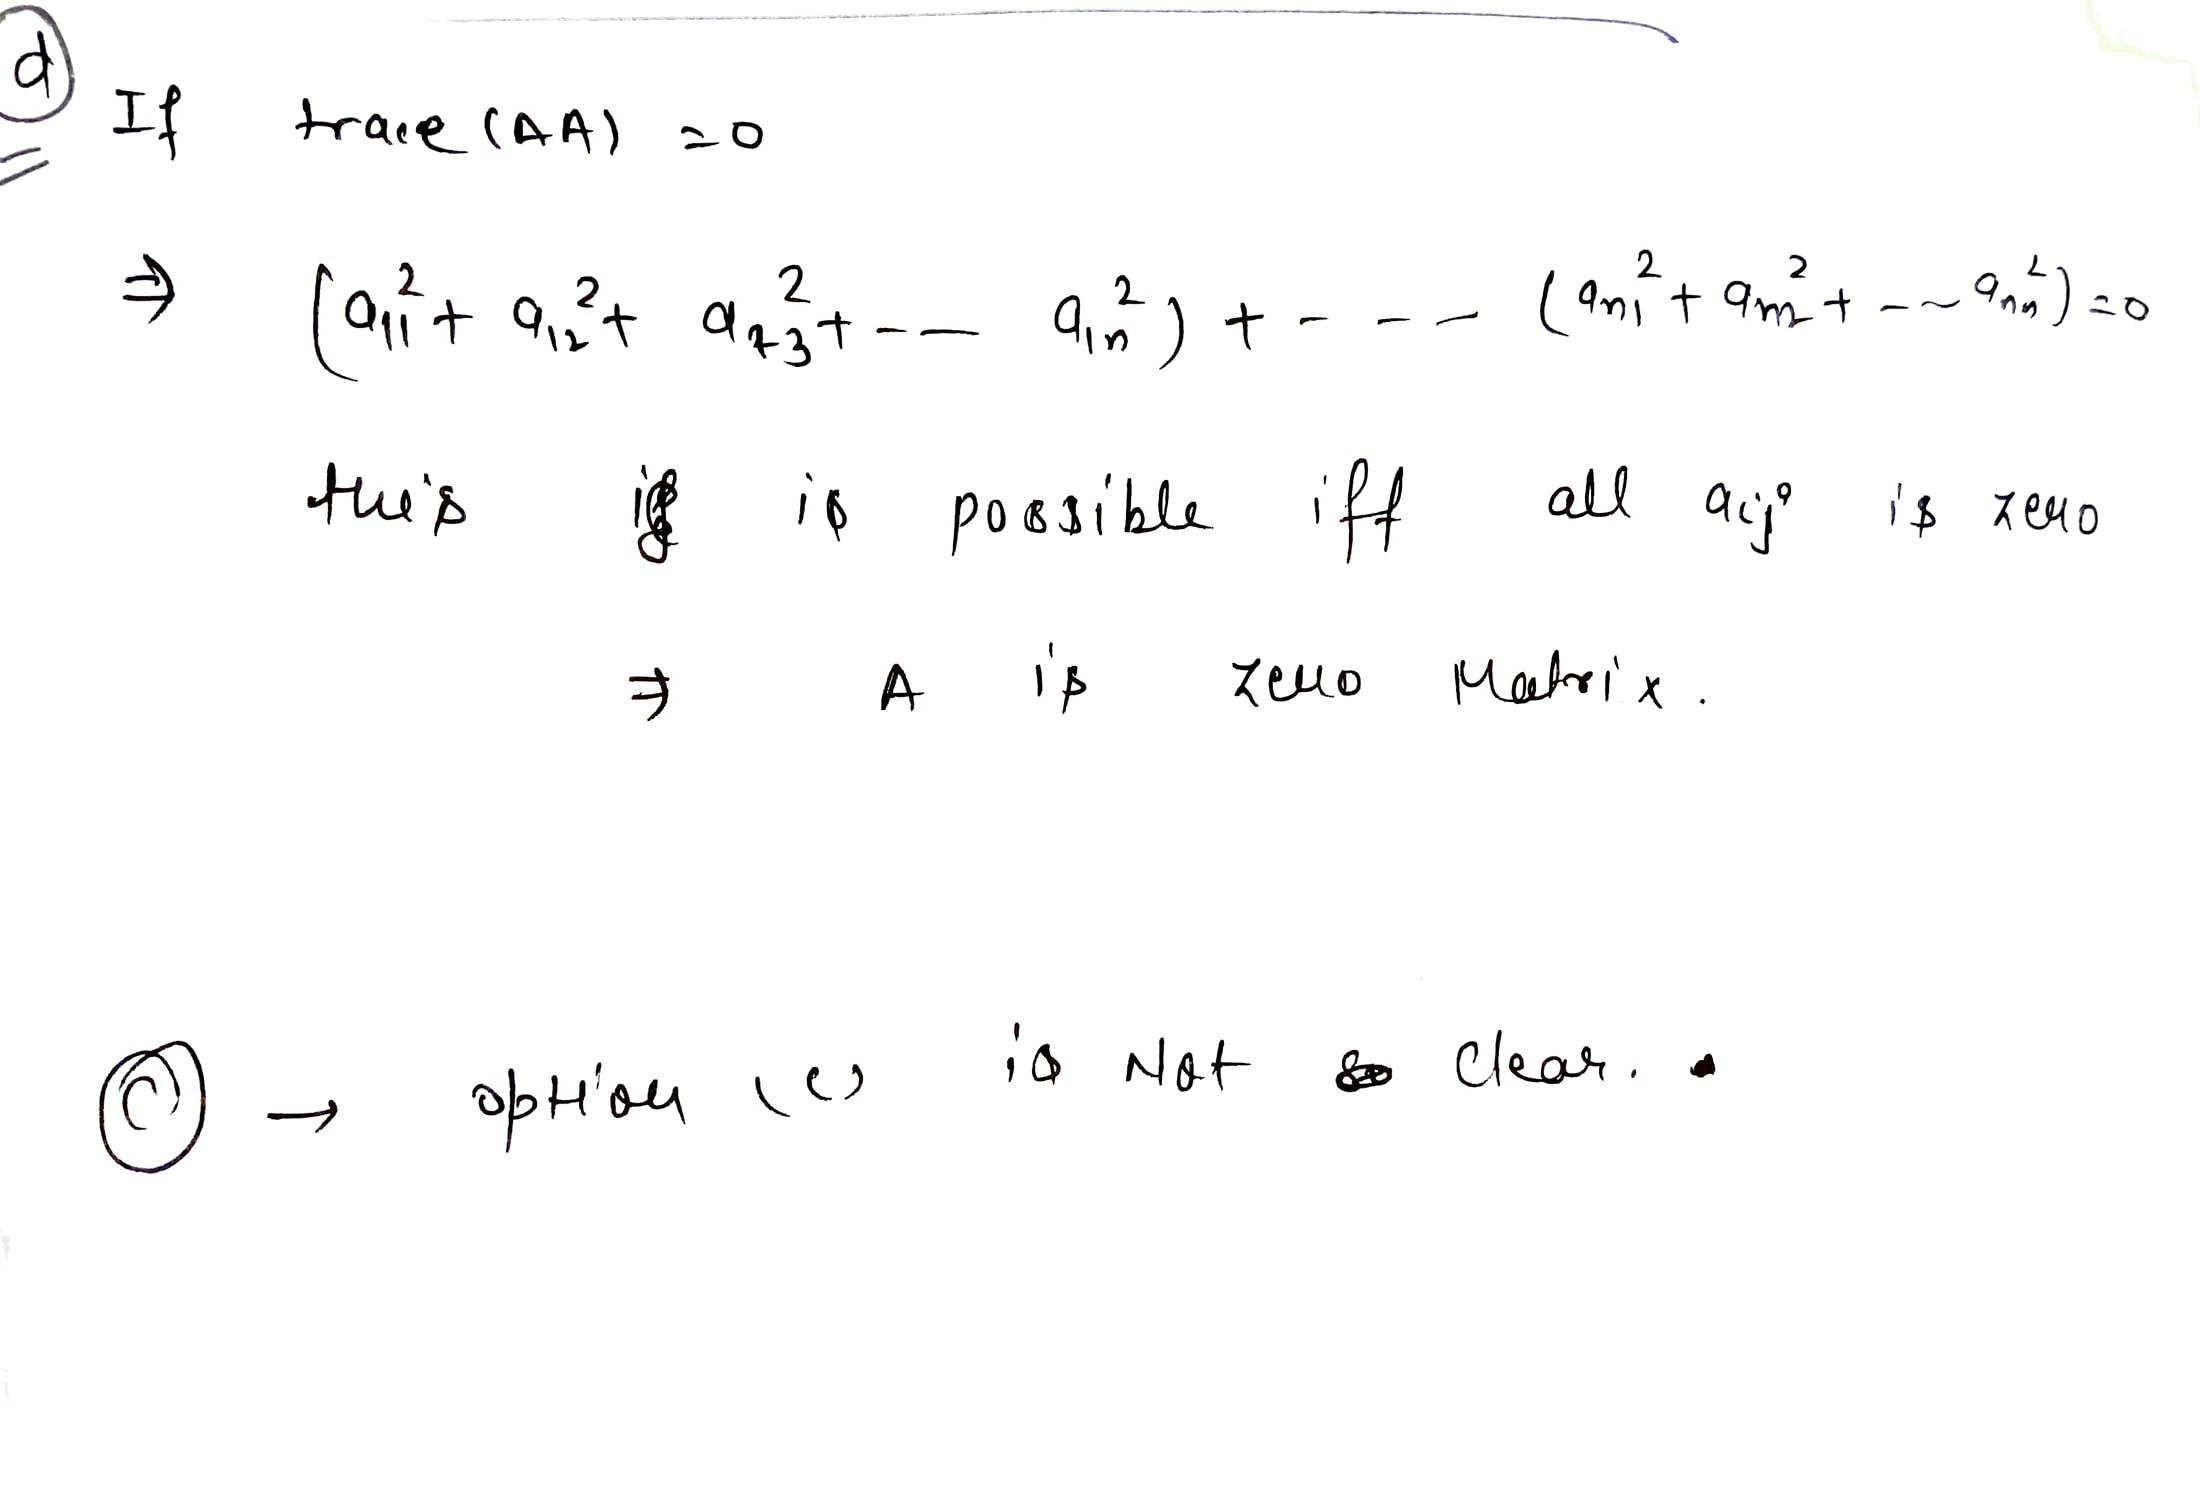 d
If trace (AA) = 0
⇒ (a₁₁² + a₁₂² + a₂₃² + - - a₁ₙ²) + - - - (aₙ₁² + aₙ₂² + - - aₙₙ²) = 0
this is possible iff all aij is zero
⇒ A is zero Matrix.
(C) → option (c) is Not so clear.